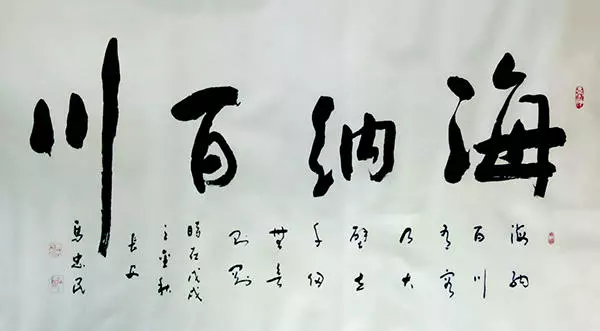 海纳百川
海纳
百川
有容
乃大
壁立
千仞
無欲
则刚
時在戊戌
之金秋
長安
馬忠民